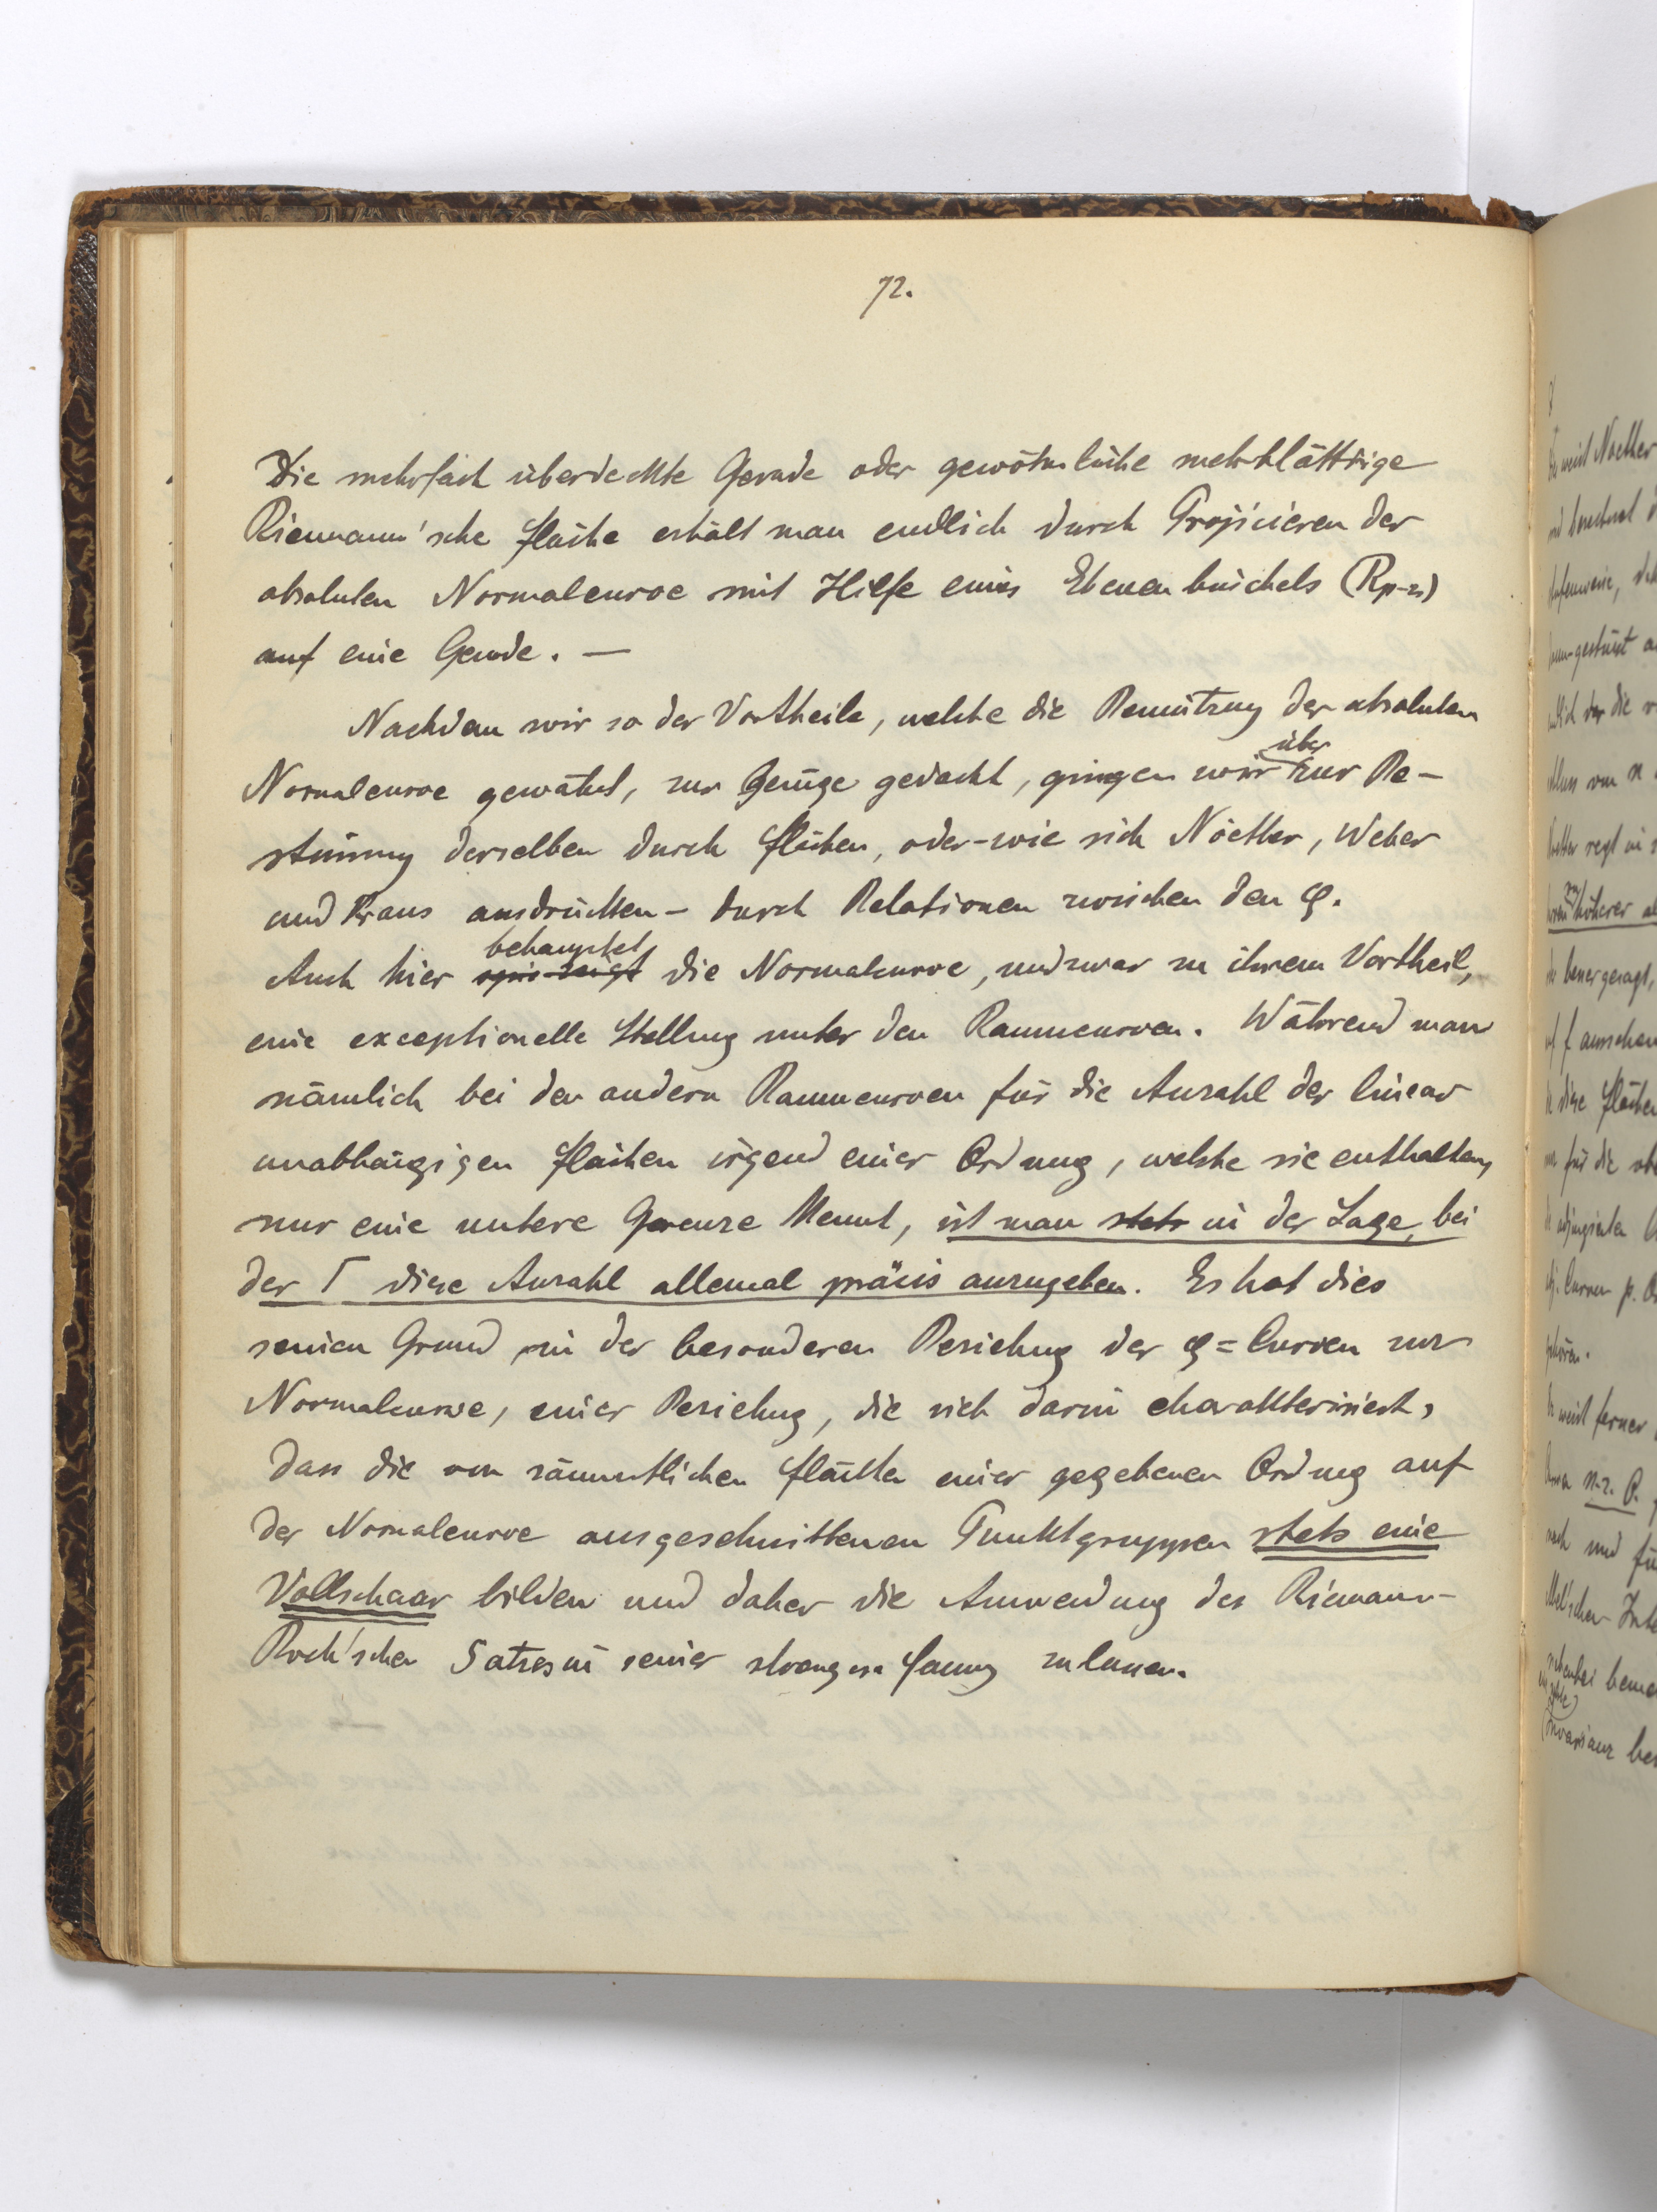 72.
Die mehrfach überdeckte Gerade oder gewöhnliche mehrblättrige
Riemann'sche Fläche erhält man endlich durch Projicieren der
absoluten Normalcurve mit Hilfe eines Ebenenbüschels (Rp-3)
auf eine Gerade. —
Nachdem wir so der Vortheile, welche die Benützung der absoluten
Normalcurve gewährt, zur Genüge gedacht, gingen wir über zur Be-
stimmung derselben durch Flächen, oder - wie sich Nöether, Weber
und Kraus ausdrücken - durch Relationen zwischen den φ.
Auch hier behauptet die Normalcurve, und zwar zu ihrem Vortheil,
eine exceptionelle Stellung unter den Raumcurven. Während man
nämlich bei den andern Raumcurven für die Anzahl der linear
unabhängigen Flächen irgend einer Ordnung, welche sie enthalten,
nur eine untere Grenze kennt, ist man stets in der Lage, bei
der Γ diese Anzahl allemal präcis anzugeben. Es hat dies
seinen Grund in der besonderen Beziehung der φ=Curven zur
Normalcurve, einer Beziehung, die sich darin charakterisiert,
dass die von sämmtlichen Flächen einer gegebenen Ordnung auf
der Normalcurve ausgeschnittenen Punktgruppen stets eine
Vollschaar bilden und daher die Anwendung des Riemann-
Roch'schen Satzes in seiner strengen Fassung zulassen.